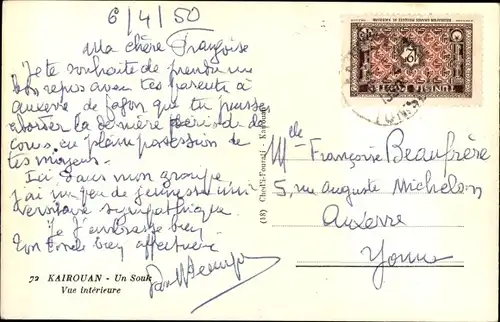 6/4/50
Ma chère Françoise
Je te souhaite de prendre un
bon repos avec tes parents à
auxerre de façon que tu puisses
aborter la dernière période de
cours en pleine possession de
tes moyens.
Ici dans mon groupe
j'ai un peu de jeunesse uni
versitaire sympathique.
Je t'embrasse bien
Ton oncle bien affectueux
72 KAIROUAN - Un Souk
Vue intérieure
(18) Chedli-Fourati - Kairouan
TUNISIE
Mlle Françoise Beaufrère
5, rue Auguste Michelon
Auxerre
Yonne